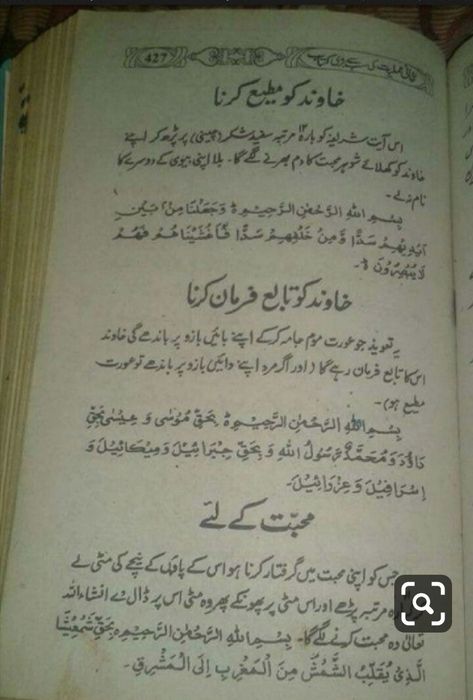 427
خاوند کو مطیع کرنا
اس آیت شریفہ کو بارہ ۱۲ مرتبہ سفید شکر (چینی) پر پڑھ کر اپنے
خاوند کو کھلائے شوہر محبت کا دم بھرنے لگے گا۔ بلا اپنی بیوی کے دوسرے کا
نام نہ لے۔
بِسْمِ اللهِ الرَّحْمٰنِ الرَّحِيْمِ ؕ وَجَعَلْنَا مِنْ بَيْنِ
اَيْدِيْهِمْ سَدًّا وَّمِنْ خَلْفِهِمْ سَدًّا فَاَغْشَيْنَاهُمْ فَهُمْ
لَا يُبْصِرُوْنَ
خاوند کو تابع فرمان کرنا
یہ تعویذ جو عورت موم جامہ کر کے اپنے بائیں بازو پر باندھے گی خاوند
اس کا تابع فرمان رہے گا (اور اگر مرد اپنے دائیں بازو پر باندھے تو عورت
مطیع ہو)۔
بِسْمِ اللهِ الرَّحْمٰنِ الرَّحِيْمِ ؕ بِحَقِّ مُوْسٰى وَ عِيْسٰى بَحَقِّ
دَاؤُدَ وَ مُحَمَّدٌ رَّسُوْلُ اللهِ وَ بِحَقِّ جِبْرَائِيْلَ وَ مِيْكَائِيْلَ وَ
اِسْرَافِيْلَ وَ عِزْرَائِيْلَ۔
محبّت کے لئے
جس کو اپنی محبت میں گرفتار کرنا ہو اس کے پاؤں کے نیچے کی مٹی لے
مرتبہ پڑھے اور اس مٹی پر پھونکے پھر وہ مٹی اس پر ڈال دے انشاء اللہ
تعالیٰ وہ محبت کرنے لگے گا۔ بِسْمِ اللهِ الرَّحْمٰنِ الرَّحِيْمِ ؕ بِحَقِّ
الَّذِىْ يُقَلِّبُ الشَّمْسَ مِنَ الْمَغْرِبِ اِلَى الْمَشْرِقِ۔